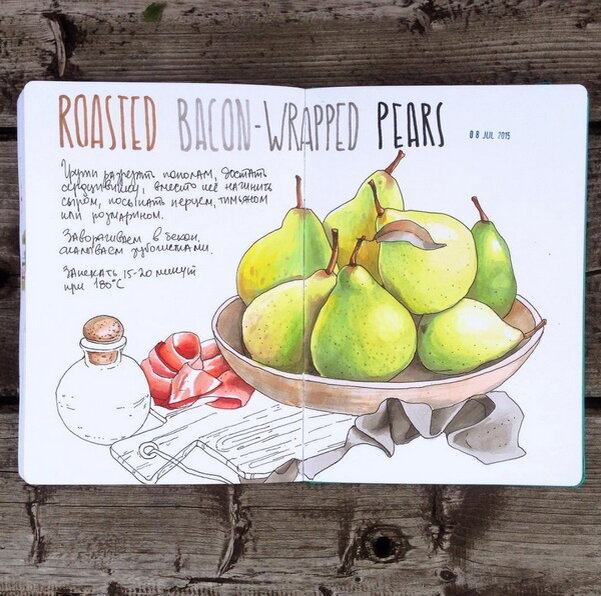 ROASTED BACON-WRAPPED PEARS
08 JUL 2015
Груши разрезать пополам, достать
сердцевину, вместо неё начинить
сыром, посыпать перцем, тимьяном
или розмарином.
Заворачиваем в бекон,
скалываем зубочистками.
Запекать 15-20 минут
при 180°C